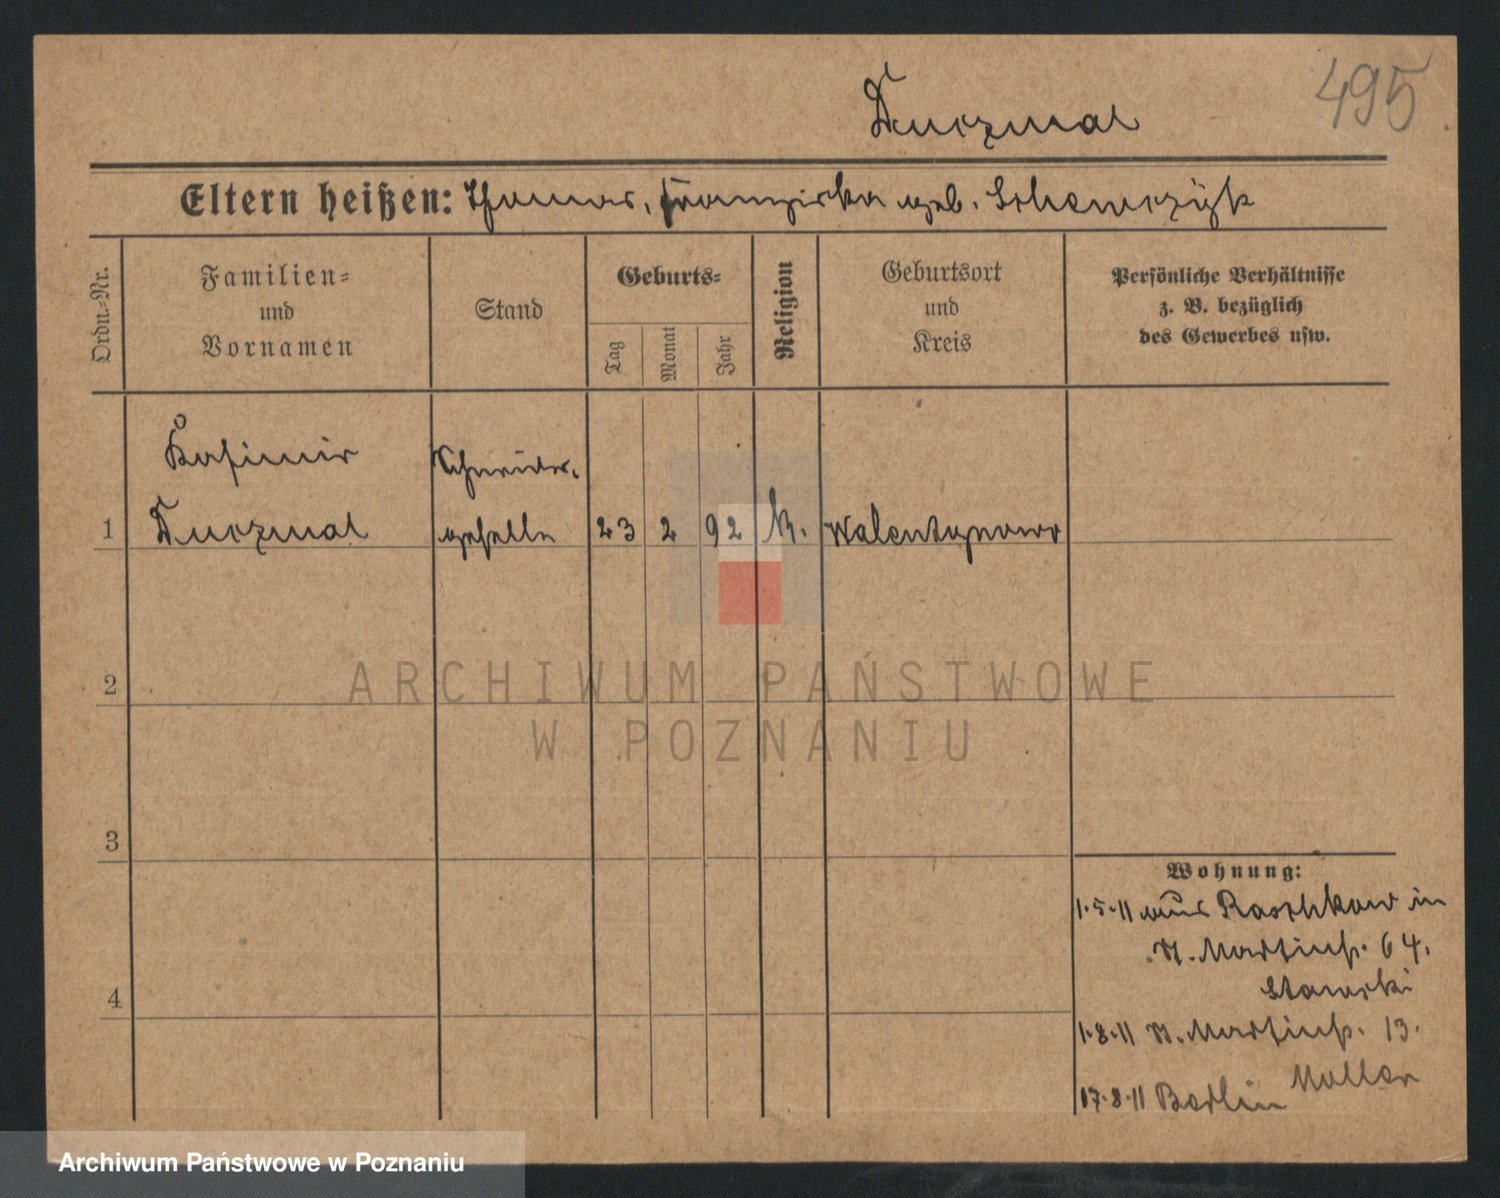 495
Durczmal
Eltern heißen: Thomas, Franziska geb. Schewczyk
Ordn.-Nr.
Familien-
und
Vornamen
Stand
Geburts-
Tag
Monat
Jahr
Religion
Geburtsort
und
Kreis
Persönliche Verhältnisse
z. B. bezüglich
des Gewerbes usw.
Kasimir Schneider-
1 geselle 23 2 92 K. Walentynowo
2
3
4
Wohnung:
1.5.11 aus Raschkow in
St. Martinstr. 64.
Stawski
1.8.11 St. Martinstr. 13.
17.8.11 Berlin
ARCHIWUM PAŃSTWOWE
W POZNANIU
Archiwum Państwowe w Poznaniu